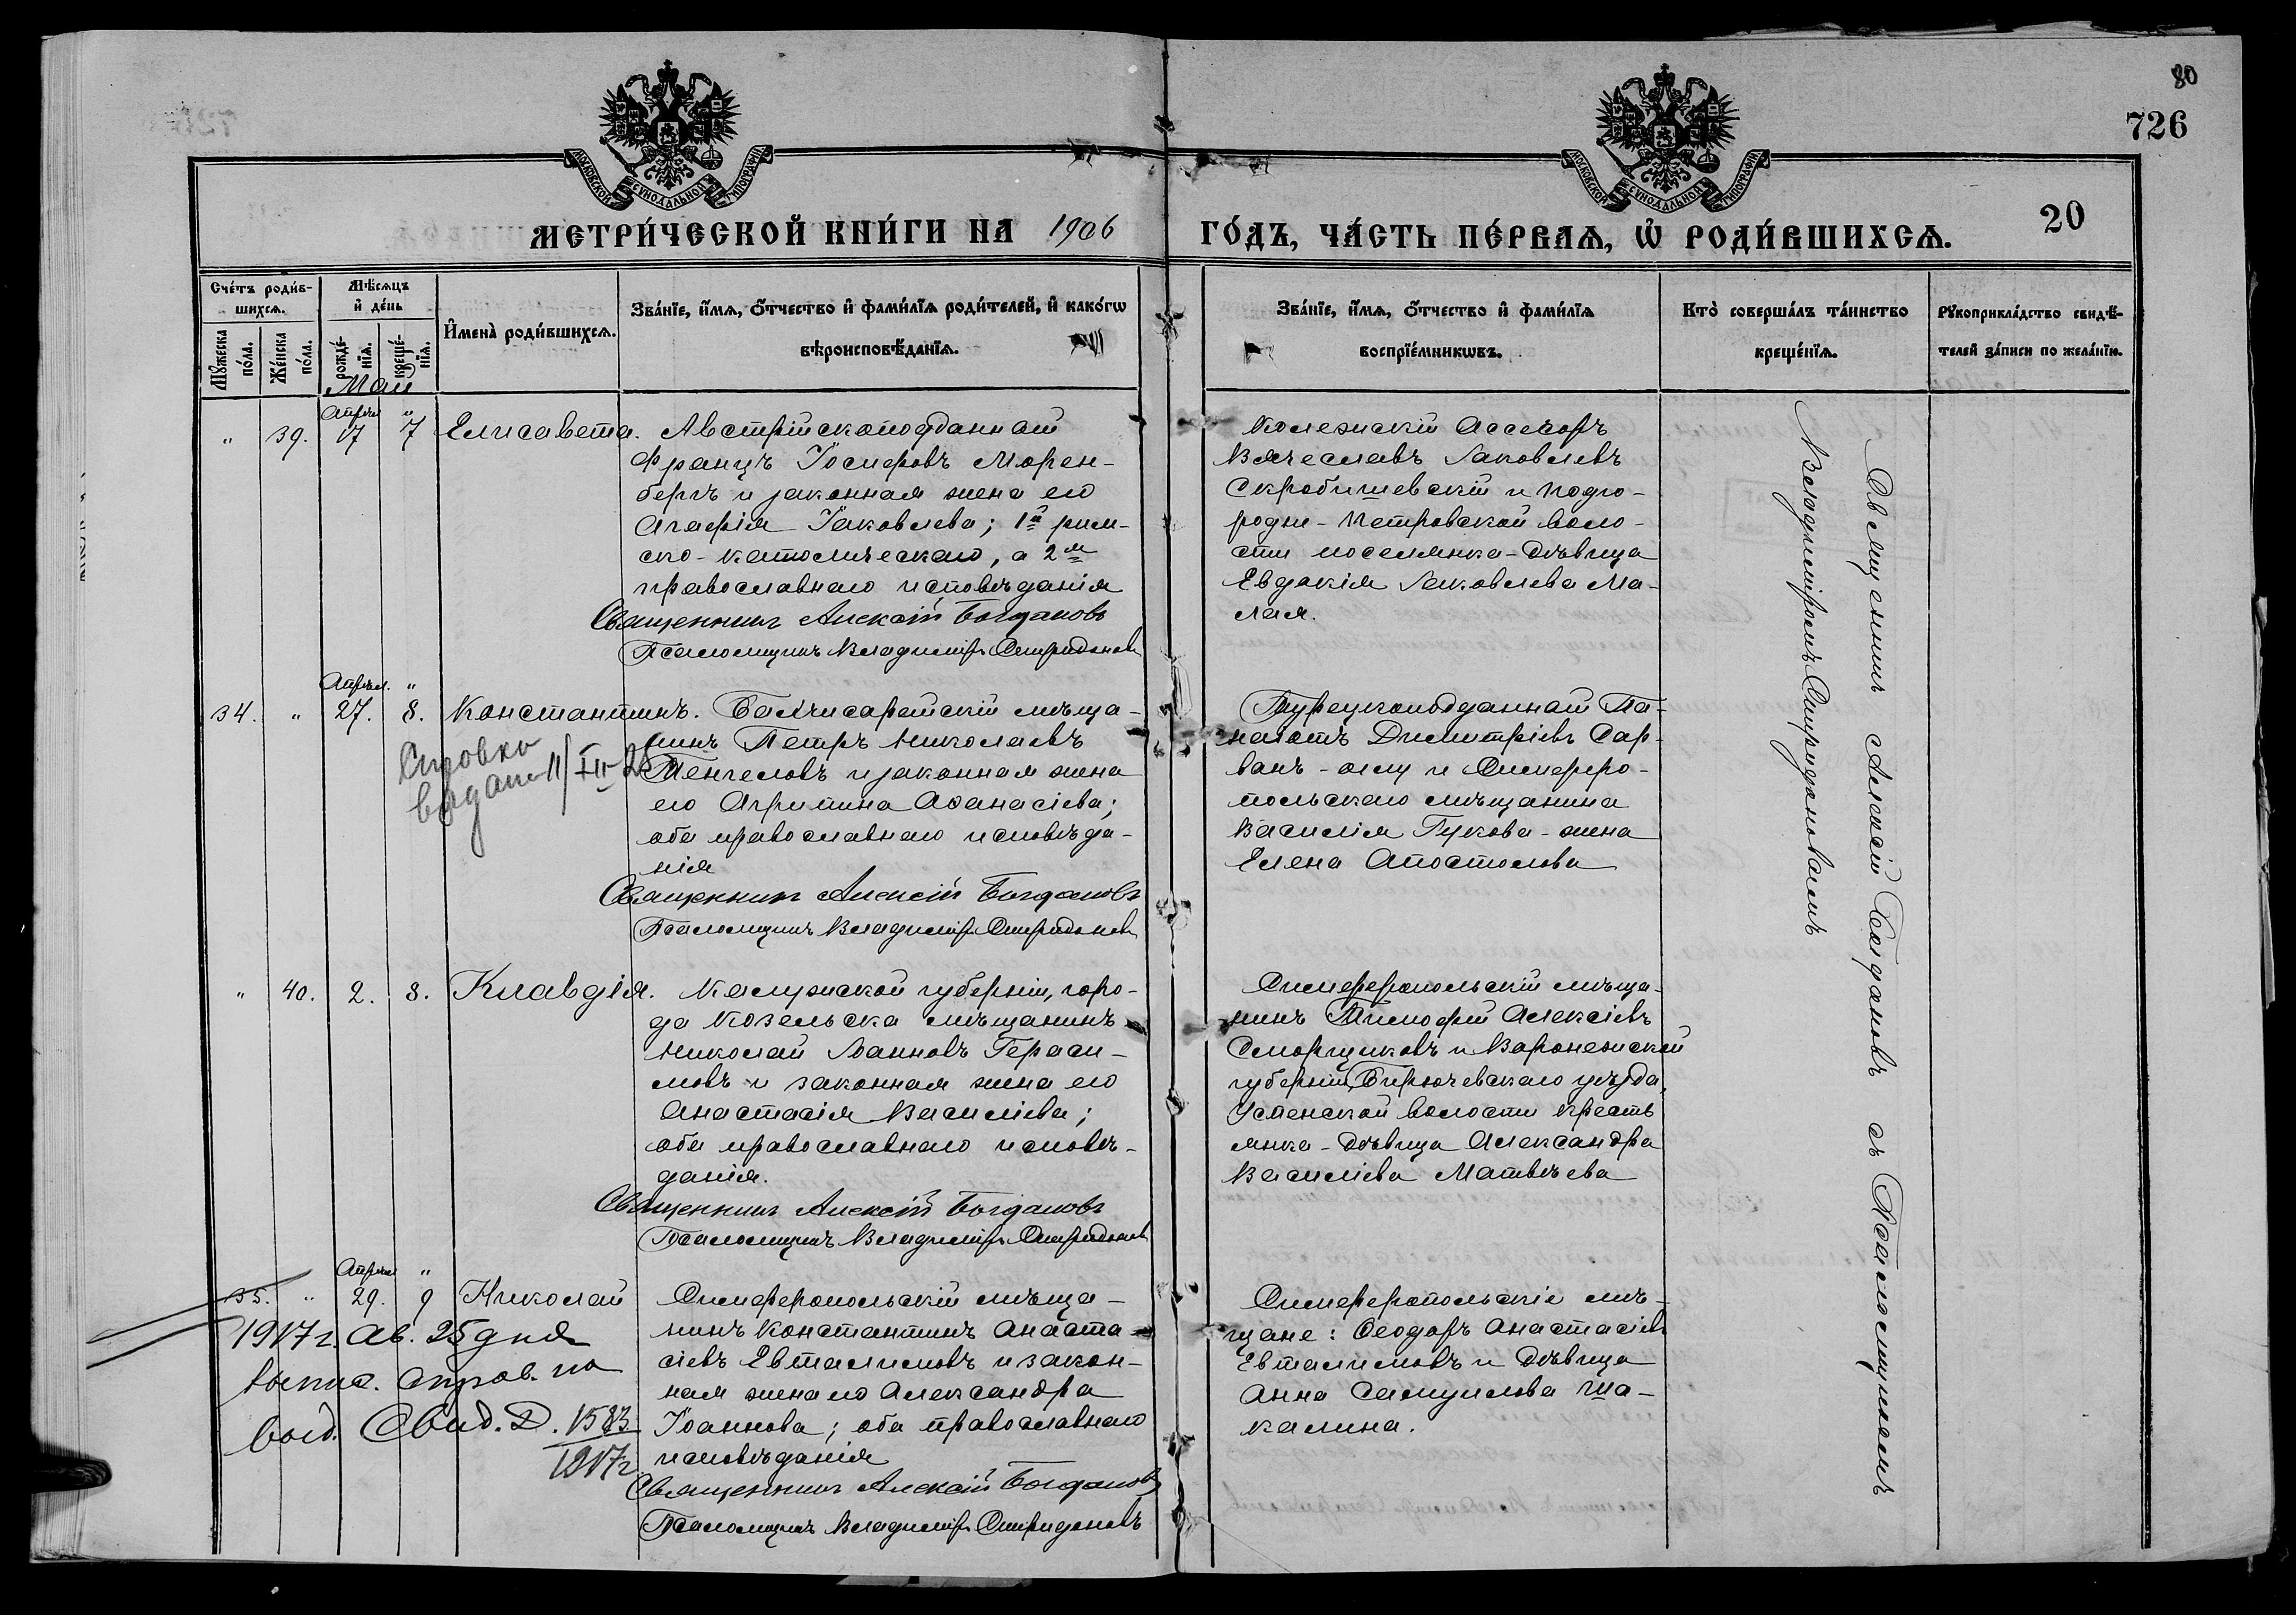 80
726
МОСКОВСКОЙ СѴНОДАЛЬНОЙ ТИПОГРАФІИ
МОСКОВСКОЙ СѴНОДАЛЬНОЙ ТИПОГРАФІИ
МЕТРИ́ЧЕСКОЙ КНИ́ГИ НА 1906 ГО́ДЪ, ЧА́СТЬ ПЕ́РВАѦ, Ѡ҆ РОДИ́ВШИХСѦ.
20
Сче́тъ роди́в-
шихсѧ.
Мꙋ́жеска по́ла.
Же́нска по́ла.
Мѣ́сѧцъ
и҆ де́нь
рожде́-
нїѧ.
креще́-
нїѧ.
И҆мена̀ роди́вшихсѧ.
Зва́нїе, и҆́мѧ, ѻ҆́тчество и҆ фами́лїѧ роди́телей, и҆ како́гѡ
вѣроисповѣ́данїѧ.
Зва́нїе, и҆́мѧ, ѻ҆́тчество и҆ фами́лїѧ
воспрїе́мникѡвъ.
Кто̀ соверша́лъ та́инство
креще́нїѧ.
Рꙋкоприкла́дство свидѣ́-
телей за́писи по жела́нїю.
Май
" 39. Апрѣл 17 " 7 Елисавета.
Австрійскоподданный
Францъ Іосифовъ Морен-
бергъ и законная жена его
Агафія Іаковлева; 1й рим-
ско-католическаго, а 2я
православнаго исповѣданія
Священникъ Алексій Богдановъ
Псаломщикъ Владиміръ Спиридоновъ
Колежскій Ассесоръ
Вячеславъ Іаковлевъ
Скробишевскій и Подго-
родне-Петровской воло-
сти поселянка-дѣвица
Евдокія Іаковлева Ма-
лая.
34. " Апрѣл. 27. " 8. Константинъ.
Бахчисарайскій мѣща-
нинъ Петръ Николаевъ
Тенчеловъ и законная жена
его Агрипина Аѳанасіева;
оба православнаго исповѣда-
нія
Священникъ Алексій Богдановъ
Псаломщикъ Владиміръ Спиридоновъ
Справка
выдана 11/III
Турецкоподданный Па-
наіотъ Димитріевъ Сар-
ванъ-оглу и Симферо-
польскаго мѣщанина
Василія Гукова-жена
Елена Апостолова
" 40. 2. 8. Клавдія.
Калужской губерніи, горо-
да Козельска мѣщанинъ
Николай Іоанновъ Гераси-
мовъ и законная жена его
Анастасія Василіева;
оба православнаго исповѣ-
данія.
Священникъ Алексій Богдановъ
Псаломщикъ Владиміръ Спиридоновъ
Симферопольскій мѣща-
нинъ Тимофей Алексіевъ
Сморщиковъ и Воронежской
губерніи, Бирючевскаго уѣзда,
Успенской волости кресть
янка-дѣвица Александра
Василіева Матвѣева
35. " Апрѣл 29. " 9 Николай
Симферопольскій мѣща-
нинъ Константинъ Анаста-
сіевъ Евталимовъ и закон-
ная жена его Александра
Іоаннова; оба православнаго
исповѣданія
Священникъ Алексій Богдановъ
Псаломщикъ Владиміръ Спиридоновъ
1917 г. Ав. 25 дня
выпис. справ. на
выд. Свид. 1583
1917 г
Симферопольскіе мѣ-
щане: Ѳеодоръ Анастасіевъ
Евталимовъ и дѣвица
Анна Самуилова Ша-
калина.
Священникъ Алексій Богдановъ съ Псаломщикомъ
Владиміромъ Спиридоновымъ